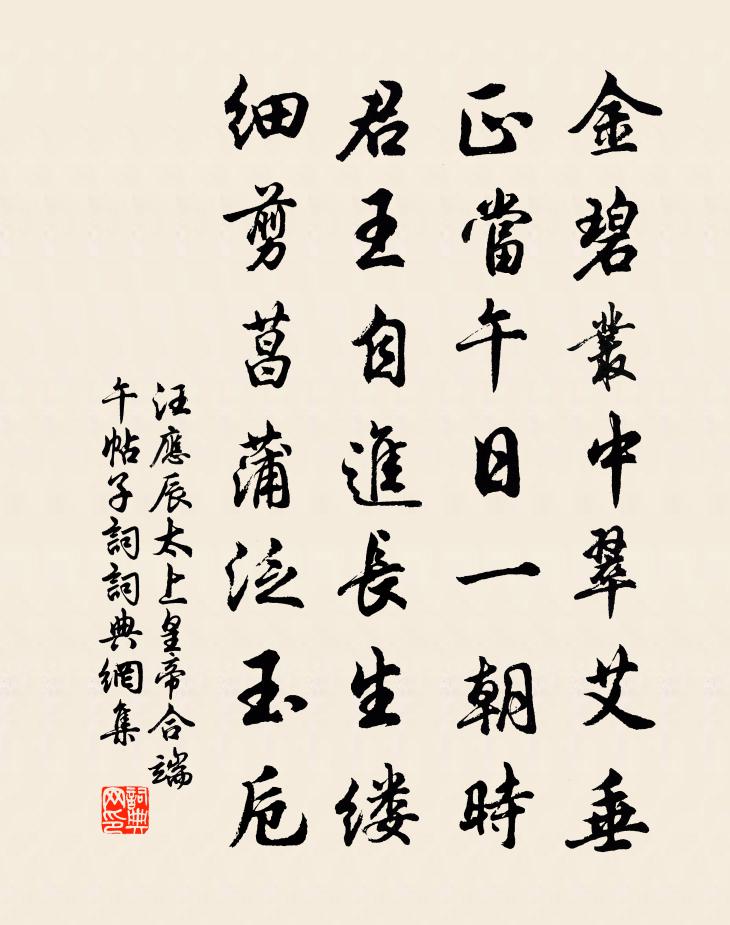 金碧叢中翠艾垂
正當午日一朝時
君王自進長生缕
細剪菖蒲泛玉卮
汪應辰太上皇帝合端
午帖子詞詞典網集
詞典
网印